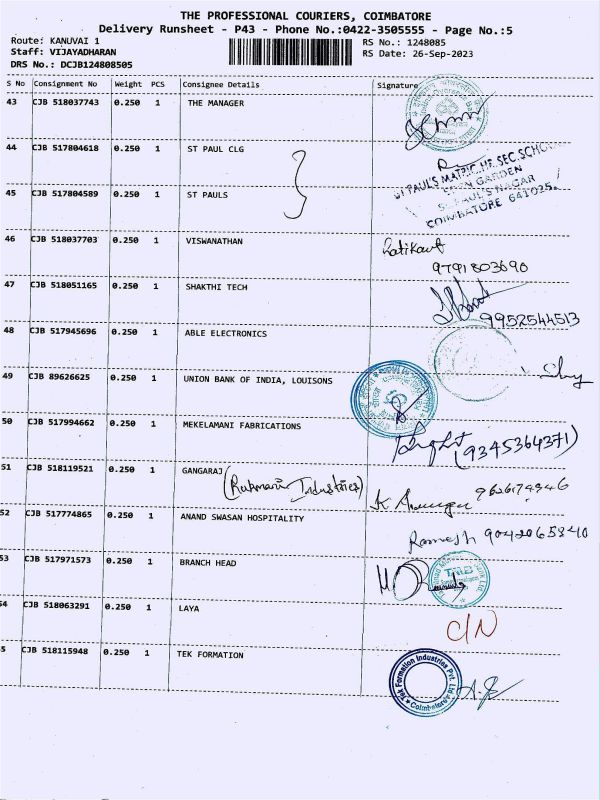 THE PROFESSIONAL COURIERS, COIMBATORE
Delivery Runsheet - P43 - Phone No.:0422-3505555 - Page No.:5
Route: KANUVAI 1
Staff: VIJAYADHARAN
DRS No.: DCJB124808505
RS No.: 1248085
RS Date: 26-Sep-2023
S No Consignment No Weight PCS Consignee Details Signature
43 CJB 518037743 0.250 1 THE MANAGER
44 CJB 517804618 0.250 1 ST PAUL CLG
ST PAUL'S MATRIC.HR.SEC.SCHOOL
GARDEN
ST. PAUL'S NAGAR
COIMBATORE 641025.
45 CJB 517804589 0.250 1 ST PAULS
46 CJB 518037703 0.250 1 VISWANATHAN
9791803690
47 CJB 518051165 0.250 1 SHAKTHI TECH
9952544513
48 CJB 517945696 0.250 1 ABLE ELECTRONICS
49 CJB 89626625 0.250 1 UNION BANK OF INDIA, LOUISONS
50 CJB 517994662 0.250 1 MEKELAMANI FABRICATIONS
(9345364371)
51 CJB 518119521 0.250 1 GANGARAJ
(Rukmani Industries)
9626174346
52 CJB 517774865 0.250 1 ANAND SWASAN HOSPITALITY
Ramesh 9042065840
53 CJB 517971573 0.250 1 BRANCH HEAD
TMB
54 CJB 518063291 0.250 1 LAYA
C/N
5 CJB 518115948 0.250 1 TEK FORMATION
Tek Formation Industries Pvt. Ltd.
Coimbatore